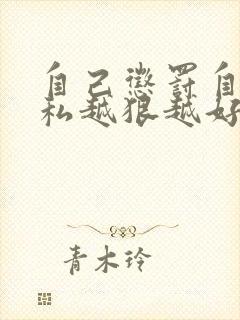 自己懲罰自
私越狠越好
青木玲